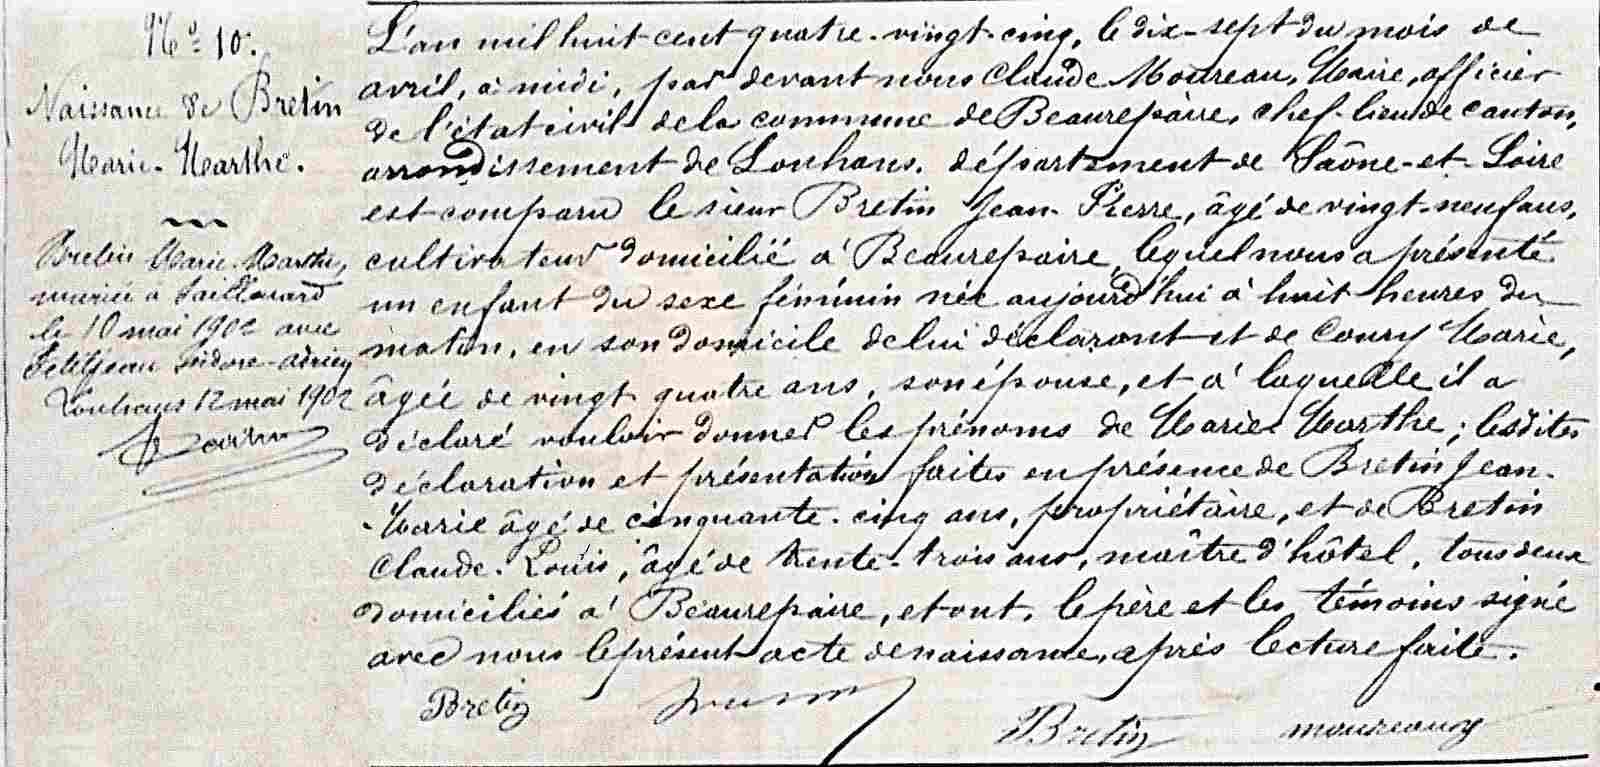 N° 10.
Naissance de Bretin
Marie-Marthe.
Bretin Marie-Marthe,
mariée à Saillenard
le 10 mai 1902 avec
Petitjean Isidore-Adrien
Louhans 12 mai 1902
L'an mil huit cent quatre-vingt-cinq, le dix-sept du mois de
avril, à midi, par devant nous Claude Moureau, Maire, officier
de l'état civil de la commune de Beaurepaire, chef-lieu de canton,
arrondissement de Louhans, département de Saône-et-Loire
est comparu le sieur Bretin Jean-Pierre, âgé de vingt-neuf ans,
cultivateur domicilié à Beaurepaire, lequel nous a présenté
un enfant du sexe féminin née aujourd'hui à huit heures du
matin, en son domicile de lui déclarant et de Coury Marie,
âgée de vingt quatre ans, son épouse, et à laquelle il a
déclaré vouloir donner les prénoms de Marie Marthe; lesdites
déclaration et présentation faites en présence de Bretin Jean-
-Marie âgé de cinquante-cinq ans, propriétaire, et de Bretin
Claude-Louis, âgé de trente-trois ans, maître d'hôtel, tous deux
domiciliés à Beaurepaire, et ont, le père et les témoins signé
avec nous le présent acte de naissance, après lecture faite.
Bretin
Bretin moureau